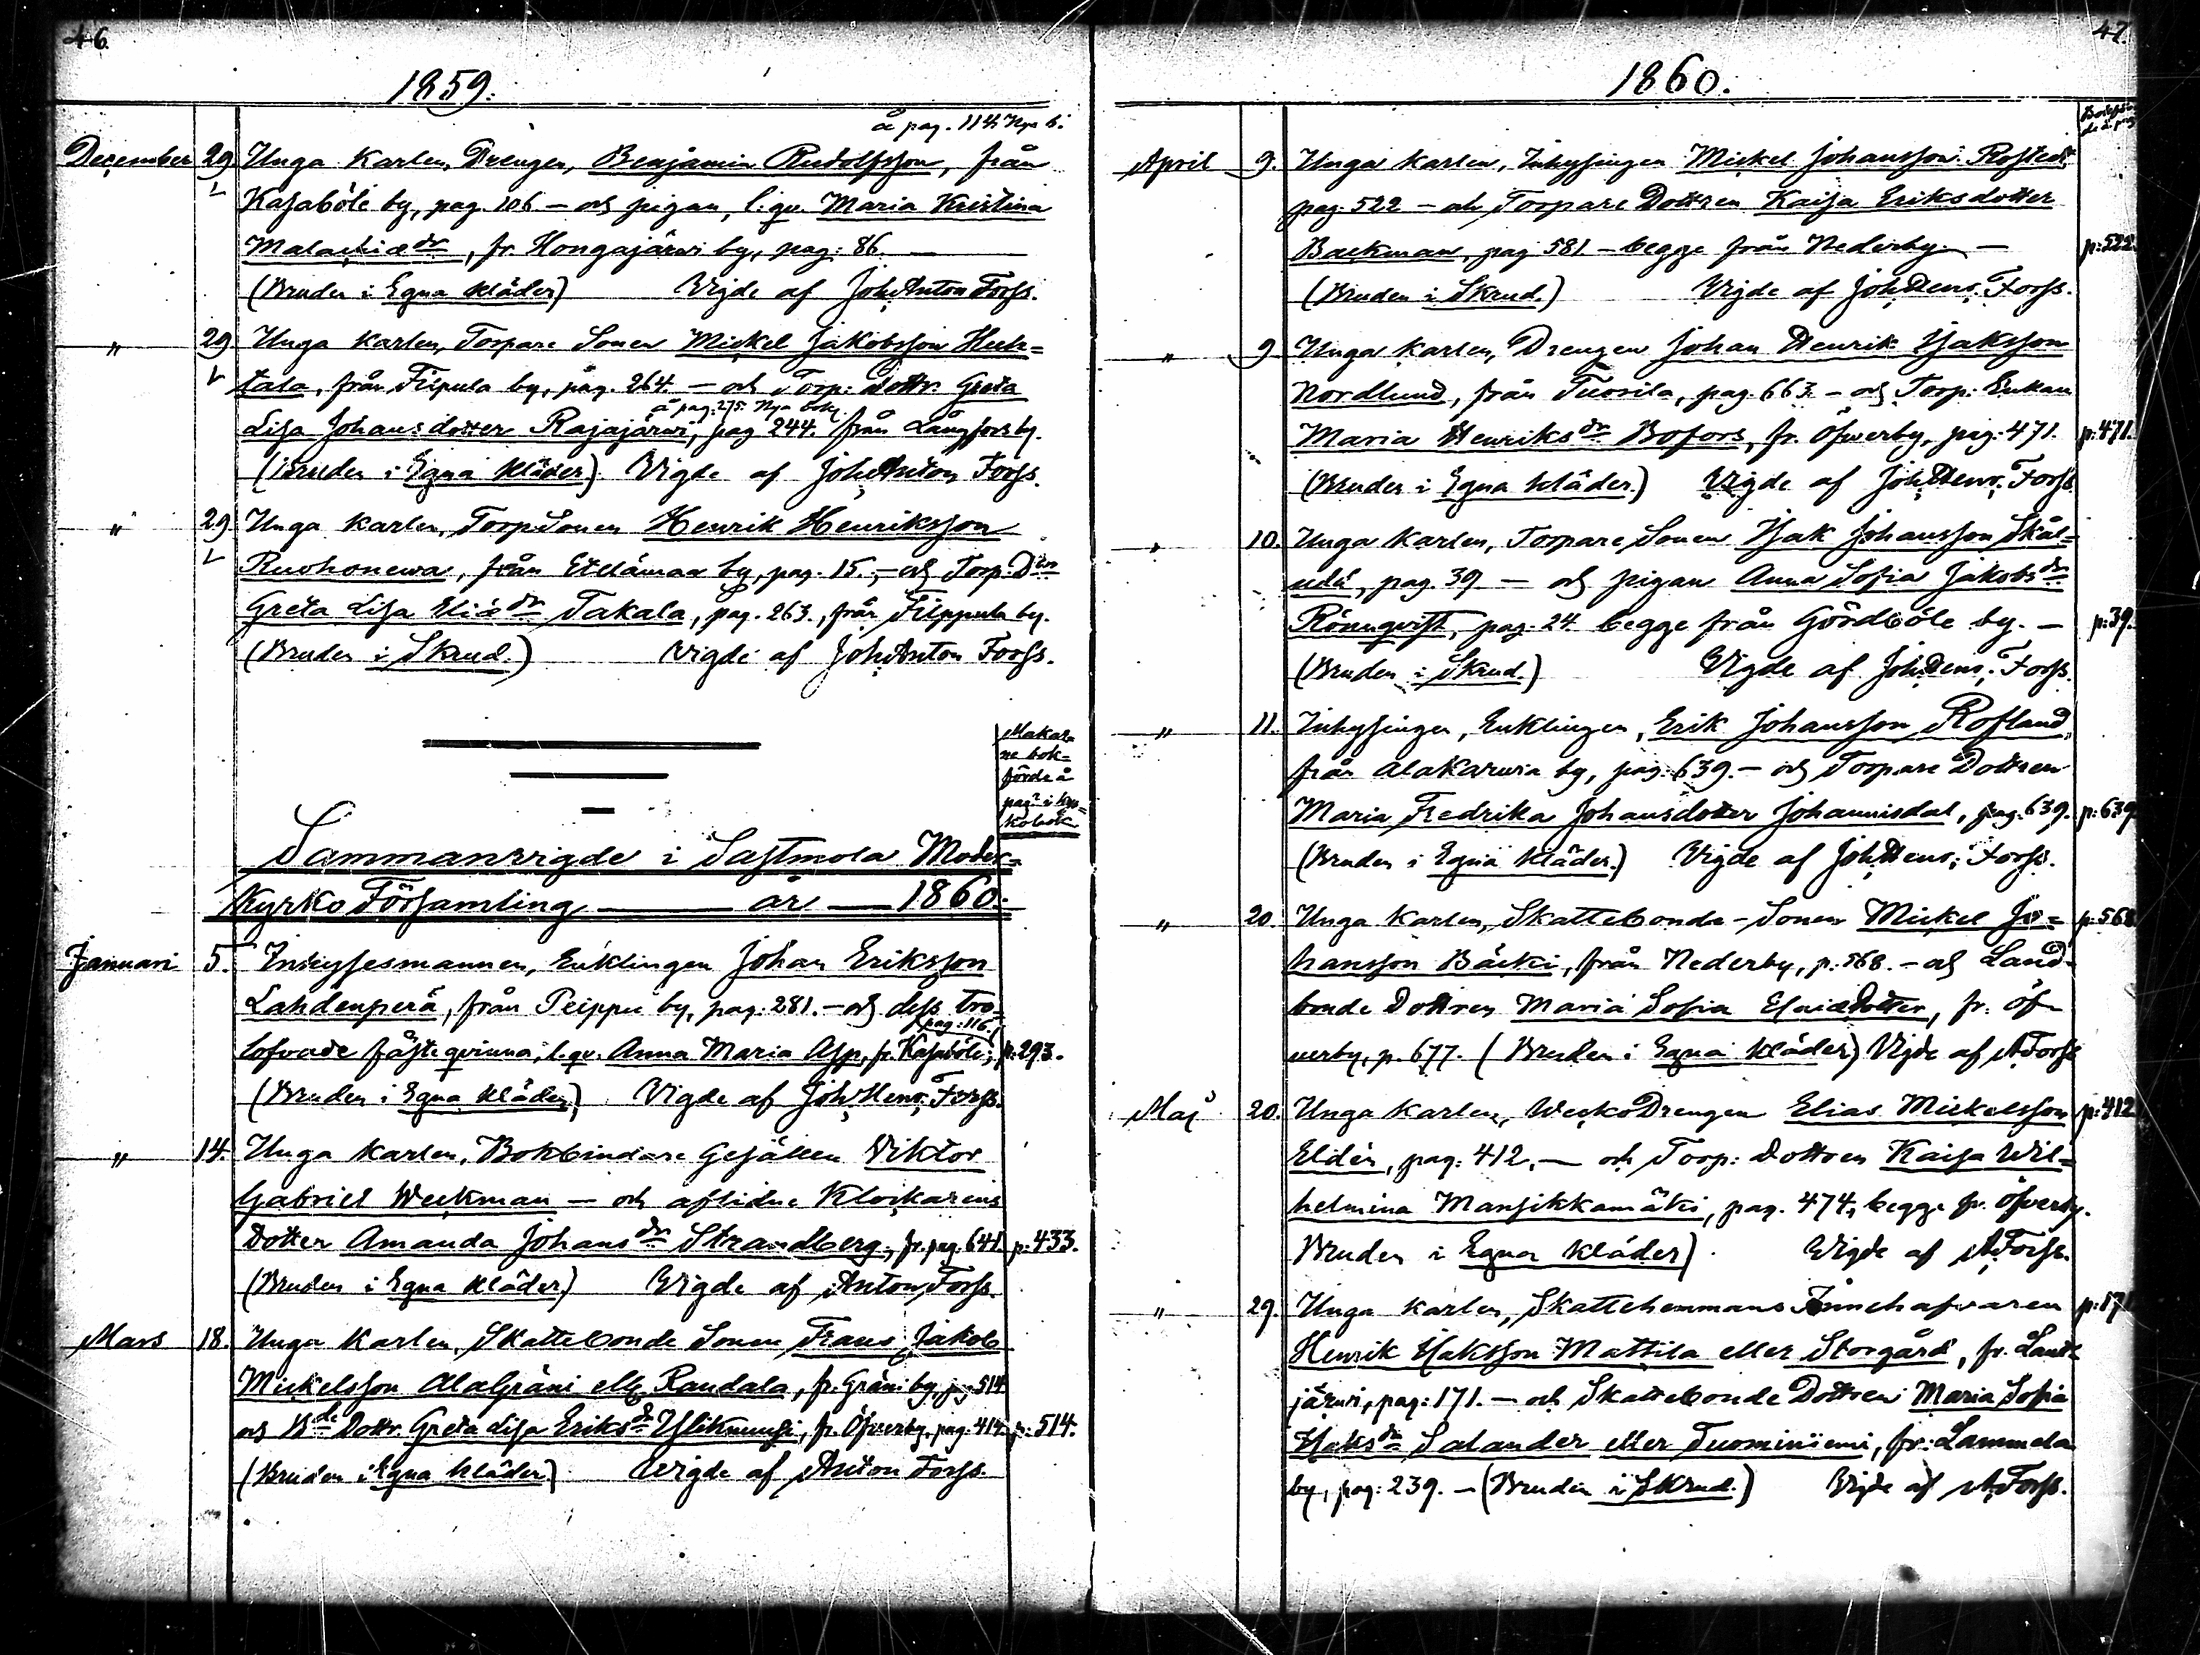 46.
1859.
å pag. 114 Nya b.
December 29 Unga Karlen, Drengen, Benjamin Rudolfsson, från
Kasaböle by, pag. 106 – och pigan, l. qv. Maria Kristina
Malachiædr, fr. Hongajärwi by, pag: 86. —
(Bruden i Egna Kläder) Vigde af Joh. Anton Forss.
" 29 Unga Karlen, Torpare Sonen Mickel Jakobsson Huh=
tala, från Filpula by, pag. 264. – och Torp: Dottr. Greta
å pag: 275. Nya boken.
Lisa Johansdotter Rajajärwi, pag 244. från Långfors by.
(Bruden i Egna Kläder) Vigde af Joh. Anton Forss.
" 29. Unga Karlen, Torp Sonen Henrik Henriksson
Ruohonewa, från Etelämaa by, pag. 15. – och Torp. Dtren
Greta Lisa Eliædr Takala, pag. 263., från Filppula by.
(Bruden i Skrud.) Vigde af Joh. Anton Forss.
Makar=
ne bok=
förde å
pag: i kyr=
kobok
Sammanvigde i Sastmola Moder=
Kyrko Församling — år — 1860.
Januari 5. Inhysesmannen, Enklingen Johan Eriksson
Lahdenperä, från Peippu by, pag. 281. – och dess tro=
pag: 116.
lofvade fästeqvinna, l. qv. Anna Maria Asp, fr. Kasaböle; p. 293.
(Bruden i Egna Kläder) Vigde af Joh. Henr. Forss.
" 14. Unga Karlen, Bokbindare Gesällen Viktor
Gabriel Weckman – och aflidne Klockarens
Dotter Amanda Johansdr Strandberg, fr. pag. 641. p. 433.
(Bruden i Egna Kläder) Vigde af Anton Forss.
Mars 18. Unga Karlen, Skattebonde Sonen Frans Jakob
Mickelsson AlaGräni elle Randala, fr. Gräni by, pag 514
och Bde Dottr. Greta Lisa Eriksdr, fr. Öfverby, pag. 414. p. 514.
(Bruden i Egna Kläder) Vigde af Anton Forss.
47.
1860.
April 9. Unga Karlen, Inhysingen Mickel Johansson Rostedt
pag. 522 – och Torpare Dottren Kaisa Eriksdotter
Backman, pag 581 – begge från Nederby. — p: 522.
(Bruden i Skrud.) Vigde af Joh. Henr. Forss.
" 9 Unga Karlen, Drengen Johan Henrik Isaksson
Nordlund, från Tuorila, pag. 663. – och Torp. Enkan
Maria Henriksdr Bofors, fr. Öfverby, pag: 471. p. 471.
(Bruden i Egna Kläder.) Vigde af Joh. Henr. Forss
" 10. Unga Karlen, Torpare Sonen Isak Johansson Skål=
, pag. 39 – och pigan Anna Sofia Jakobsdr
Rönnqvist, pag. 24. begge från Gördböle by. – p: 39.
(Bruden i Skrud.) Vigde af Joh. Henr. Forss.
" 11. Inhysingen, Enklingen, Erik Johansson Rosland,
från Alakarwia by, pag: 639. – och Torpare Dottren
Maria Fredrika Johansdotter Johannisdal, pag. 639. p: 639
(Bruden i Egna Kläder.) Vigde af Joh. Henr. Forss.
" 20. Unga Karlen, Skattebonde-Sonen Mickel Jo= p: 568
hansson Bäcki, från Nederby, p: 568. – och Land=
bonde Dottren Maria Sofia Esaiædotter, fr. Öf=
verby, p. 677. (Bruden i Egna Kläder) Vigde af A. Forss
Maj 20. Unga Karlen, WerkoDrengen Elias Mickelsson p: 412
Eldén, pag: 412, – och Torp: Dottren Kaisa Wil=
helmina Mansikkamäki, pag. 474, begge fr. Öfverby.
Bruden i Egna Kläder) Vigde af A. Forss.
" 29. Unga Karlen, Skattehemmans Innehafvaren p: 171
Henrik Isaksson Mattila eller Storgård, fr. Lank
järwi, pag: 171. – och Skattebonde Dottren Maria Sofia
Isaksdr Salander eller Tuominiemi, fr: Lammela
by, pag: 239. – (Bruden i Skrud.) Vigde af A. Forss.